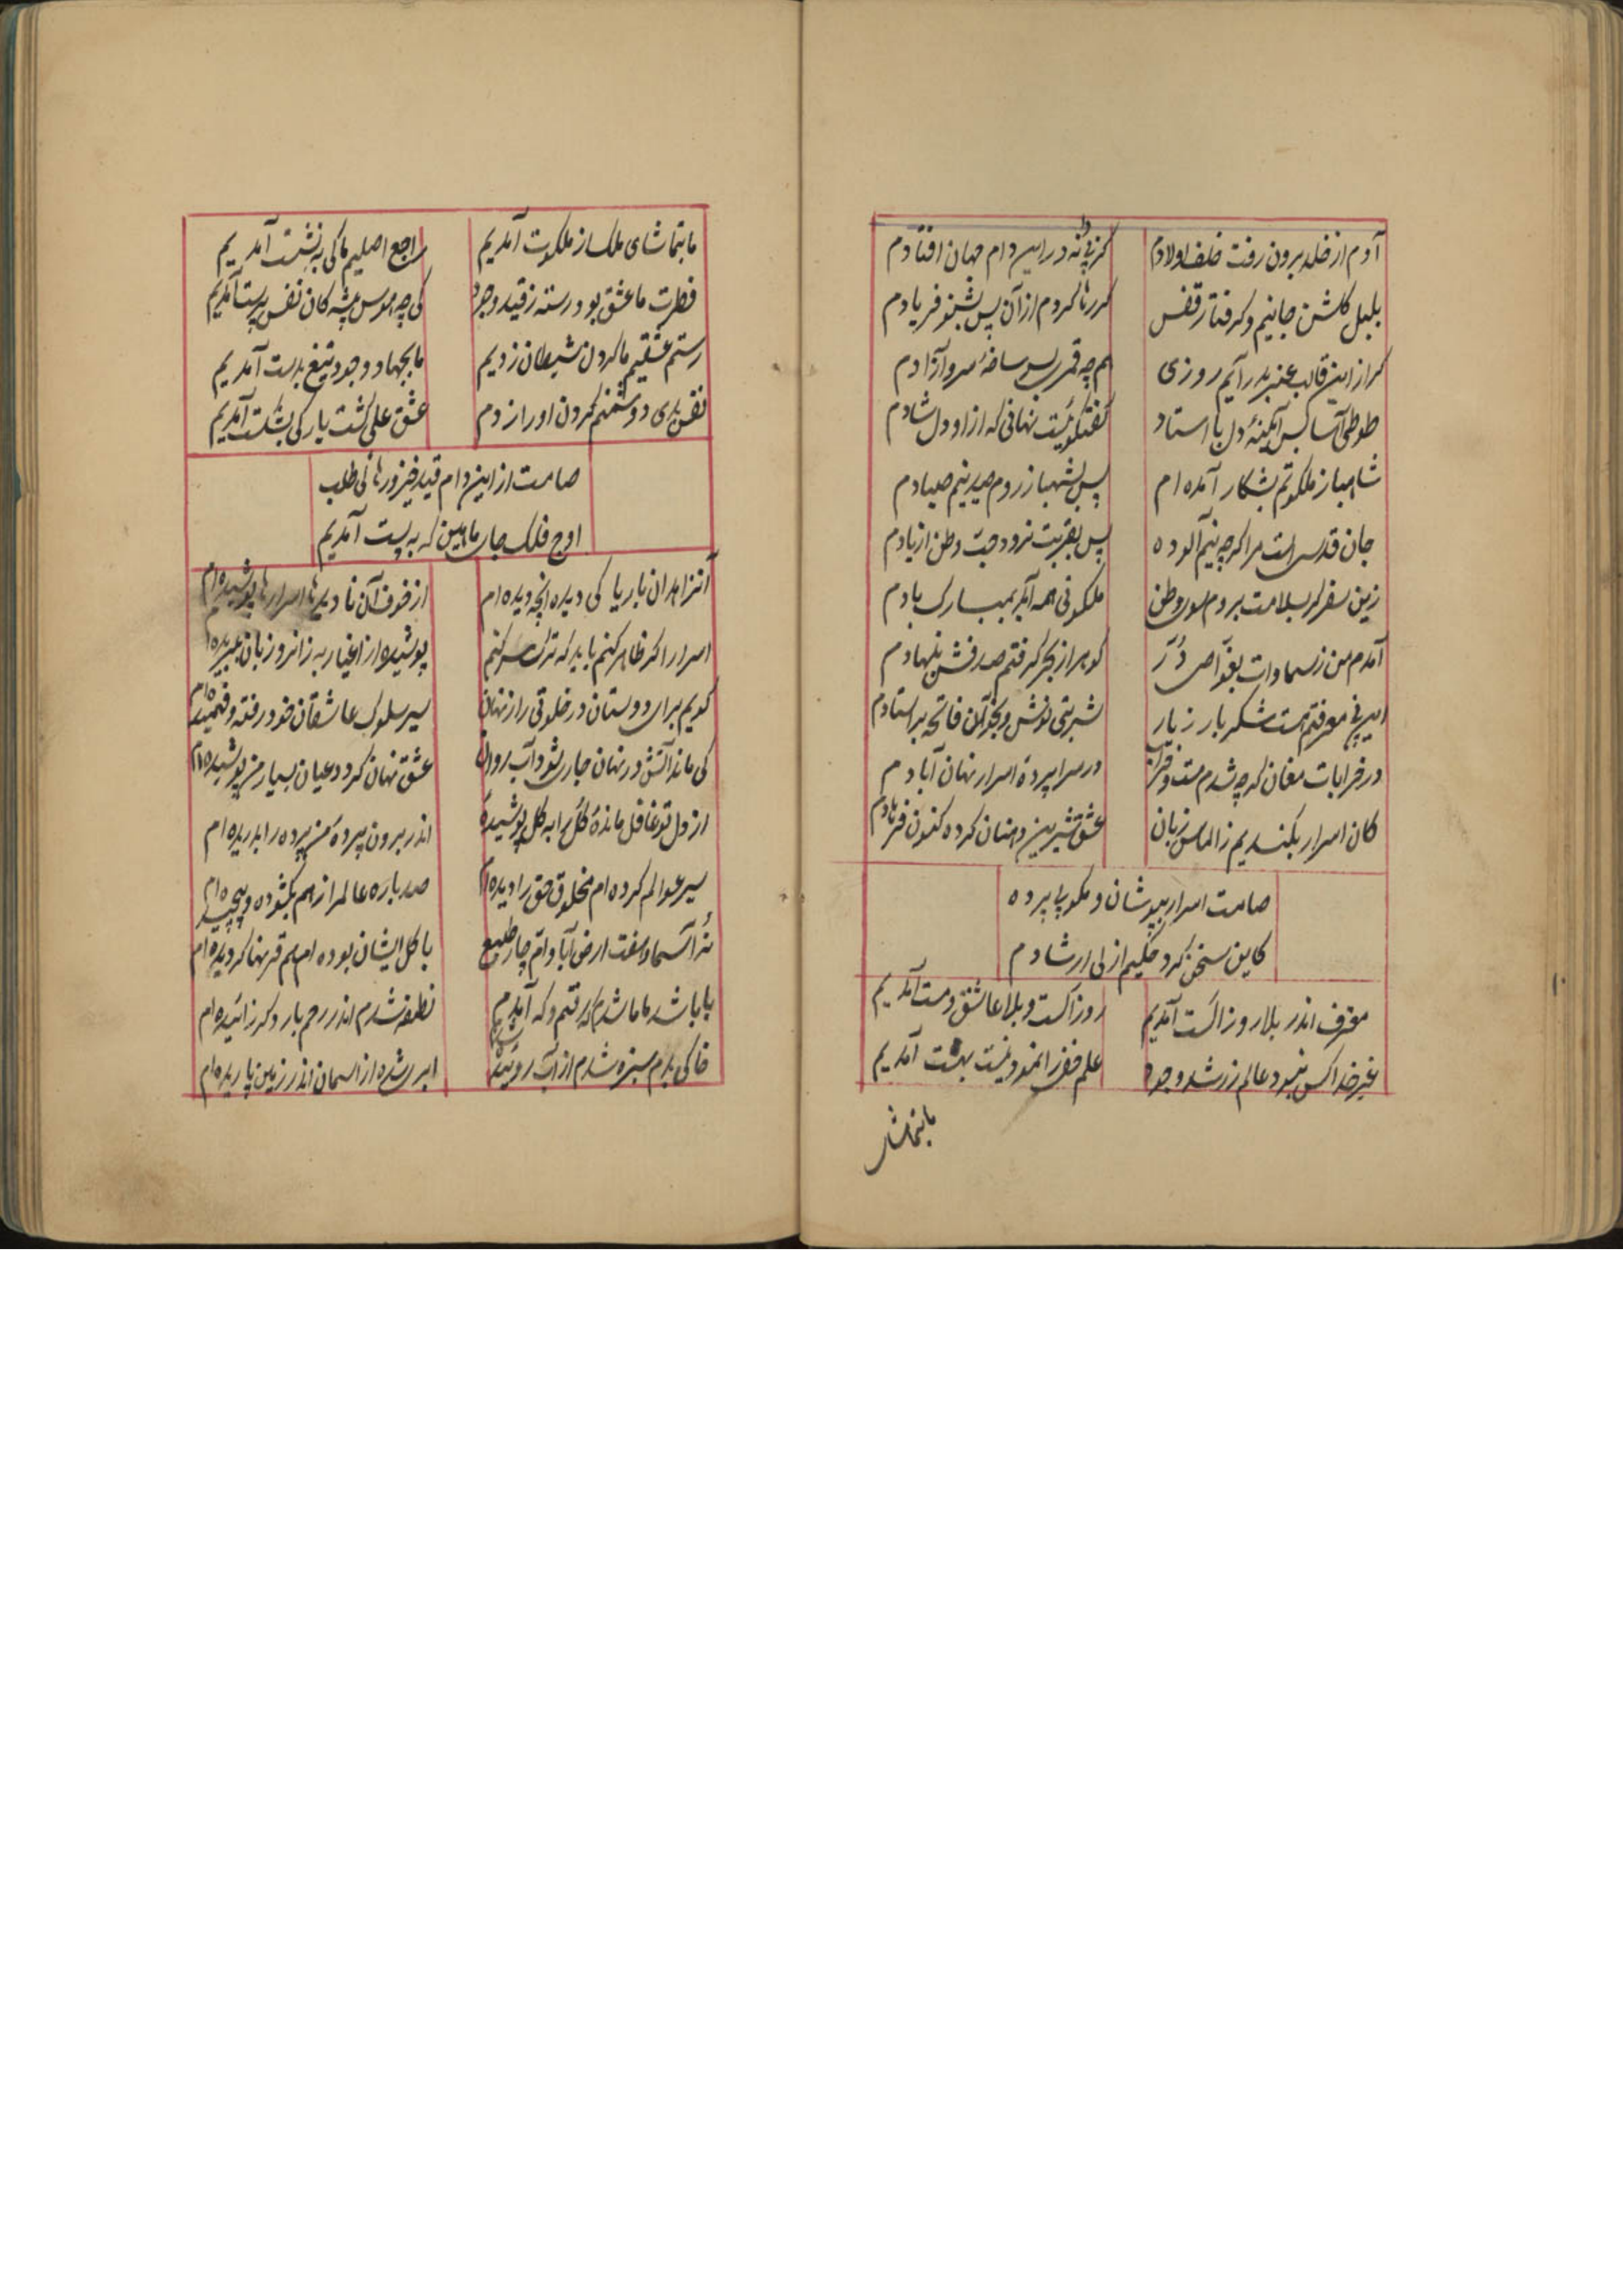 آدم از خلد برون رفت خلف اولادم
کز پی دانه در این دام جهان افتادم
بلبل کلشن جانیم و کرفتار قفس
کر رها کردم از آن پس بشنو فریادم
کر از این قالب عنبر بدر آیم روزی
همچه قمری بسر ساخهٔ سرو آزادم
طوطی آسا پس آئینهٔ دل با استاد
کفتکوئیست نهانی که از او دل شادم
شاهباز ملکوتم بشکار آمده ام
پس بشهباز روم صید نیم صیادم
جان قدسی است مرا کرچه نیم آلوده
پس بغربت نرود حب وطن از یادم
زین سفر کر بسلامت بروم سوی وطن
ملکوتی همه آید بمبارک بادم
آمدم من ز سماوات بغوّاصی دُرّ
کوهر از بحر کرفتم صدفش بنهادم
شربتی نوش و بخوان فاتحه بر استادم
در خرابات مغان کرچه شدم مست و خراب
در سراپردهٔ اسرار نهان آبادم
کان اسرار بکندیم ز الماس زبان
عشق شیرین دهنان کرده کنون فرهادم
صامت اسرار بپوشان و مکو بی پرده
کاین سخن کرد حکیم ازلی ارشادم
معترف اندر بلا روز الست آمدیم
روز الست و بلا عاشق و مست آمدیم
غیر خدا کس نبود عالم زر شد وجود
آمدیم
بتماشای
ما بتماشای ملک از ملکوت آمدیم
راجع اصلیم ما کی به نشست آمدیم
فطرت ما عشق بود رسته ز قید وجود
کی چه هوس پیشه کان نفس پرست آمدیم
رستم عشقیم ما کردن شیطان زدیم
ما بجهاد وجود تیغ بدست آمدیم
نفس بدی دوشمنم کردن او را زدم
عشق علی کشت یار کی بشکست آمدیم
صامت از این دام قید خیز و رهائی طلب
اوج فلک جای ما بین که به پست آمدیم
آنزاهدان باریا کی دیده آنچه دیده ام
از خوف آن نادیده ها اسرارها پوشیده ام
اسرار را کر ظاهر کنم باید که ترک سر کنم
کویم برای دوستان در خلوتی راز نهان
سیر سلوک عاشقان خود رفته و فهمیده ام
کی ماند آتش در نهان جاری شود آب روان
عشق نهان کردد عیان بسیار من پوشیده ام
از دل تو غافل ماندهٔ کل را به کل پوشیدهٔ
اندر برون پردهٔ من پرده را بدریده ام
سیر عوالم کرده ام مخلوق حق را دیده ام
صد باره عالم را ز هم بکشوده و پیچیده ام
نُه آسما و هفت ارض آبا و امّ چار طبیع
با کل ایشان بوده ام هم قرنها کردیده ام
بابا شد ماما شدم که رفتم و که آمدم
نطفه شدم اندر رحم بار دکر زائیده ام
خاکی بدم سبزه شدم از آب روئیده شدم
ابری شده از اسمان اندر زمین باریده ام